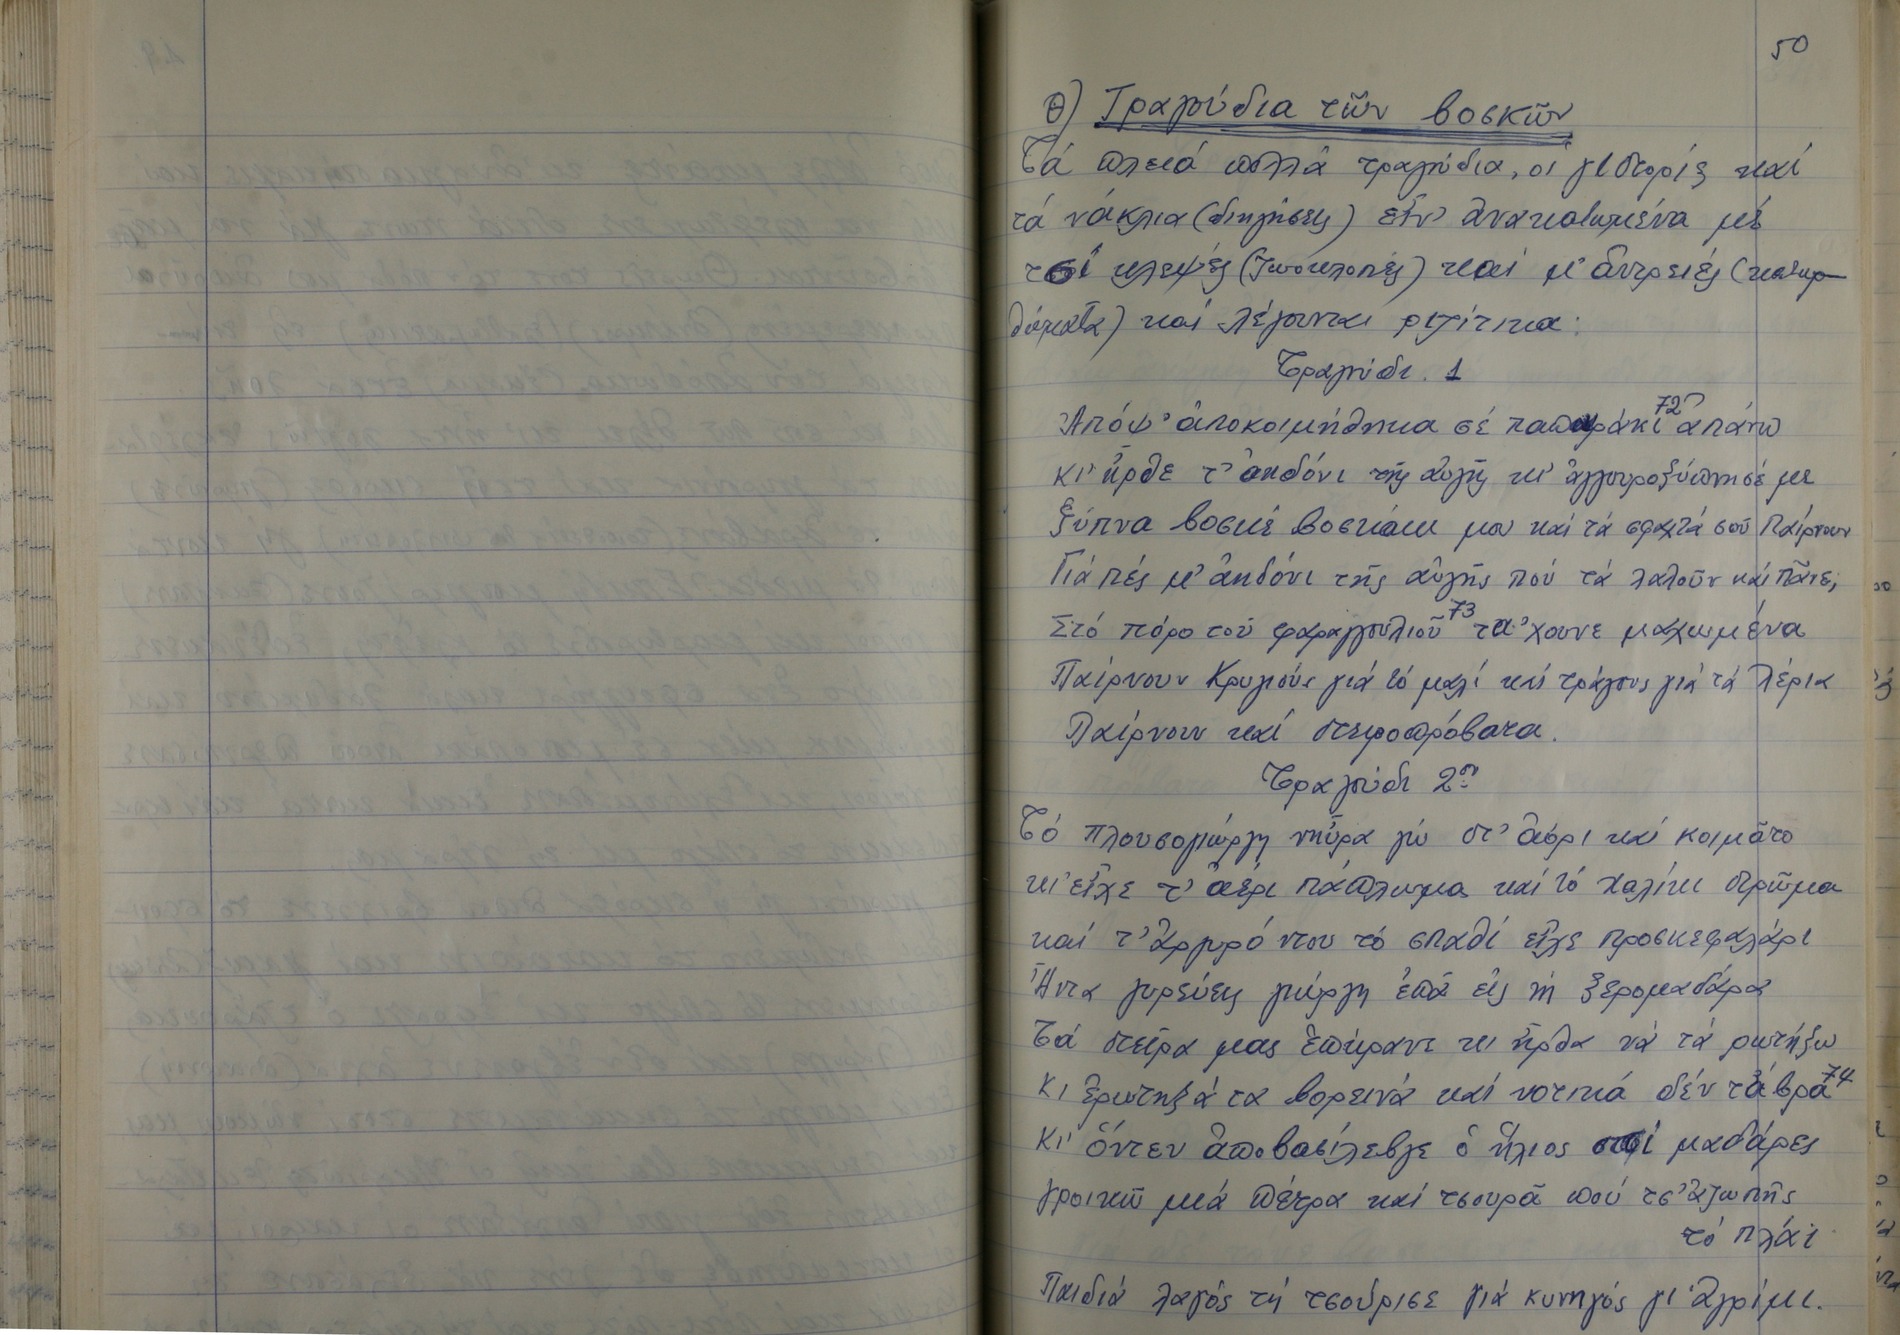 50
θ) Τραγούδια τῶν βοσκῶν
Τά πλειά πολλά τραγούδια, οἱ γιστορίες καί
τά νάκλια (διηγήσεις) εἶν' ἀνακατωμένα μέ
τσί κλεψές (ζωοκλοπές) καί μ' ἀντρειές (κατορ-
θώματα) καί λέγουνται ριζίτικα:
Τραγούδι. 1
Ἀπόψ' ἀποκοιμήθηκα σέ παπουράκι 72 ἀπάνω
κι' ἦρθε τ' ἀηδόνι τῆς αὐγῆς κι' ἀγλουροξύπνησέ με
ξύπνα βοσκέ βοσκάκι μου καί τά σφαχτά σού παίρνουν
Γιά πές μ' ἀηδόνι τῆς αὐγῆς πού τά λαλοῦν καί πᾶνε;
Στό πόρο τοῦ φαραγγουλιοῦ 73 τα 'χουνε μαχωμένα
Παίρνουν Κρυγιούς γιά τό μαλί καί τράγους γιά τά λέρια
Παίρνουν καί στειροπρόβατα.
Τραγούδι 2ον
Τό πλουσογιώργη νηῦρα γώ στ' ἀόρι καί κοιμᾶτο
κι' εἶχε τ' ἀέρι πάπλωμα καί τό χαλίκι στρῶμα
καί τ' ἀργυρό ντου τό σπαθί εἶχε προσκεφαλάρι
Ἥντα γυρεύεις γιώργη ἐπά εἰς τή ξερομαδάρα
Τά στεῖρα μας ἐπήρανε κι ἦρθα νά τά ρωτήξω
κι ἐρώτηξά τα βορεινά καί νοτικά δέν τἄβρα 74
κι' ὄντεν ἀποβασίλεβγε ὁ ἥλιος στσί μαδάρες
γροικῶ μιά πέτρα καί τσουρᾶ πού τσ' ἀζωπῆς
τό πλάι
Παιδιά λαγός τή τσούρισε γιά κυνηγός γι' ἀγρίμι.